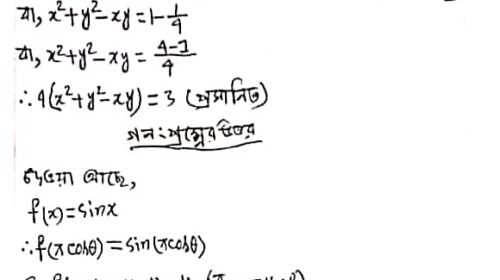 বা, x²+y²-xy=1-1/4
বা, x²+y²-xy = (4-1)/4
∴4(x²+y²-xy) = 3 (প্রমানিত)
গনং প্রশ্নের উত্তর
দেওয়া আছে,
f(x)=sinx
∴f(πcosθ)=sin(πcosθ)